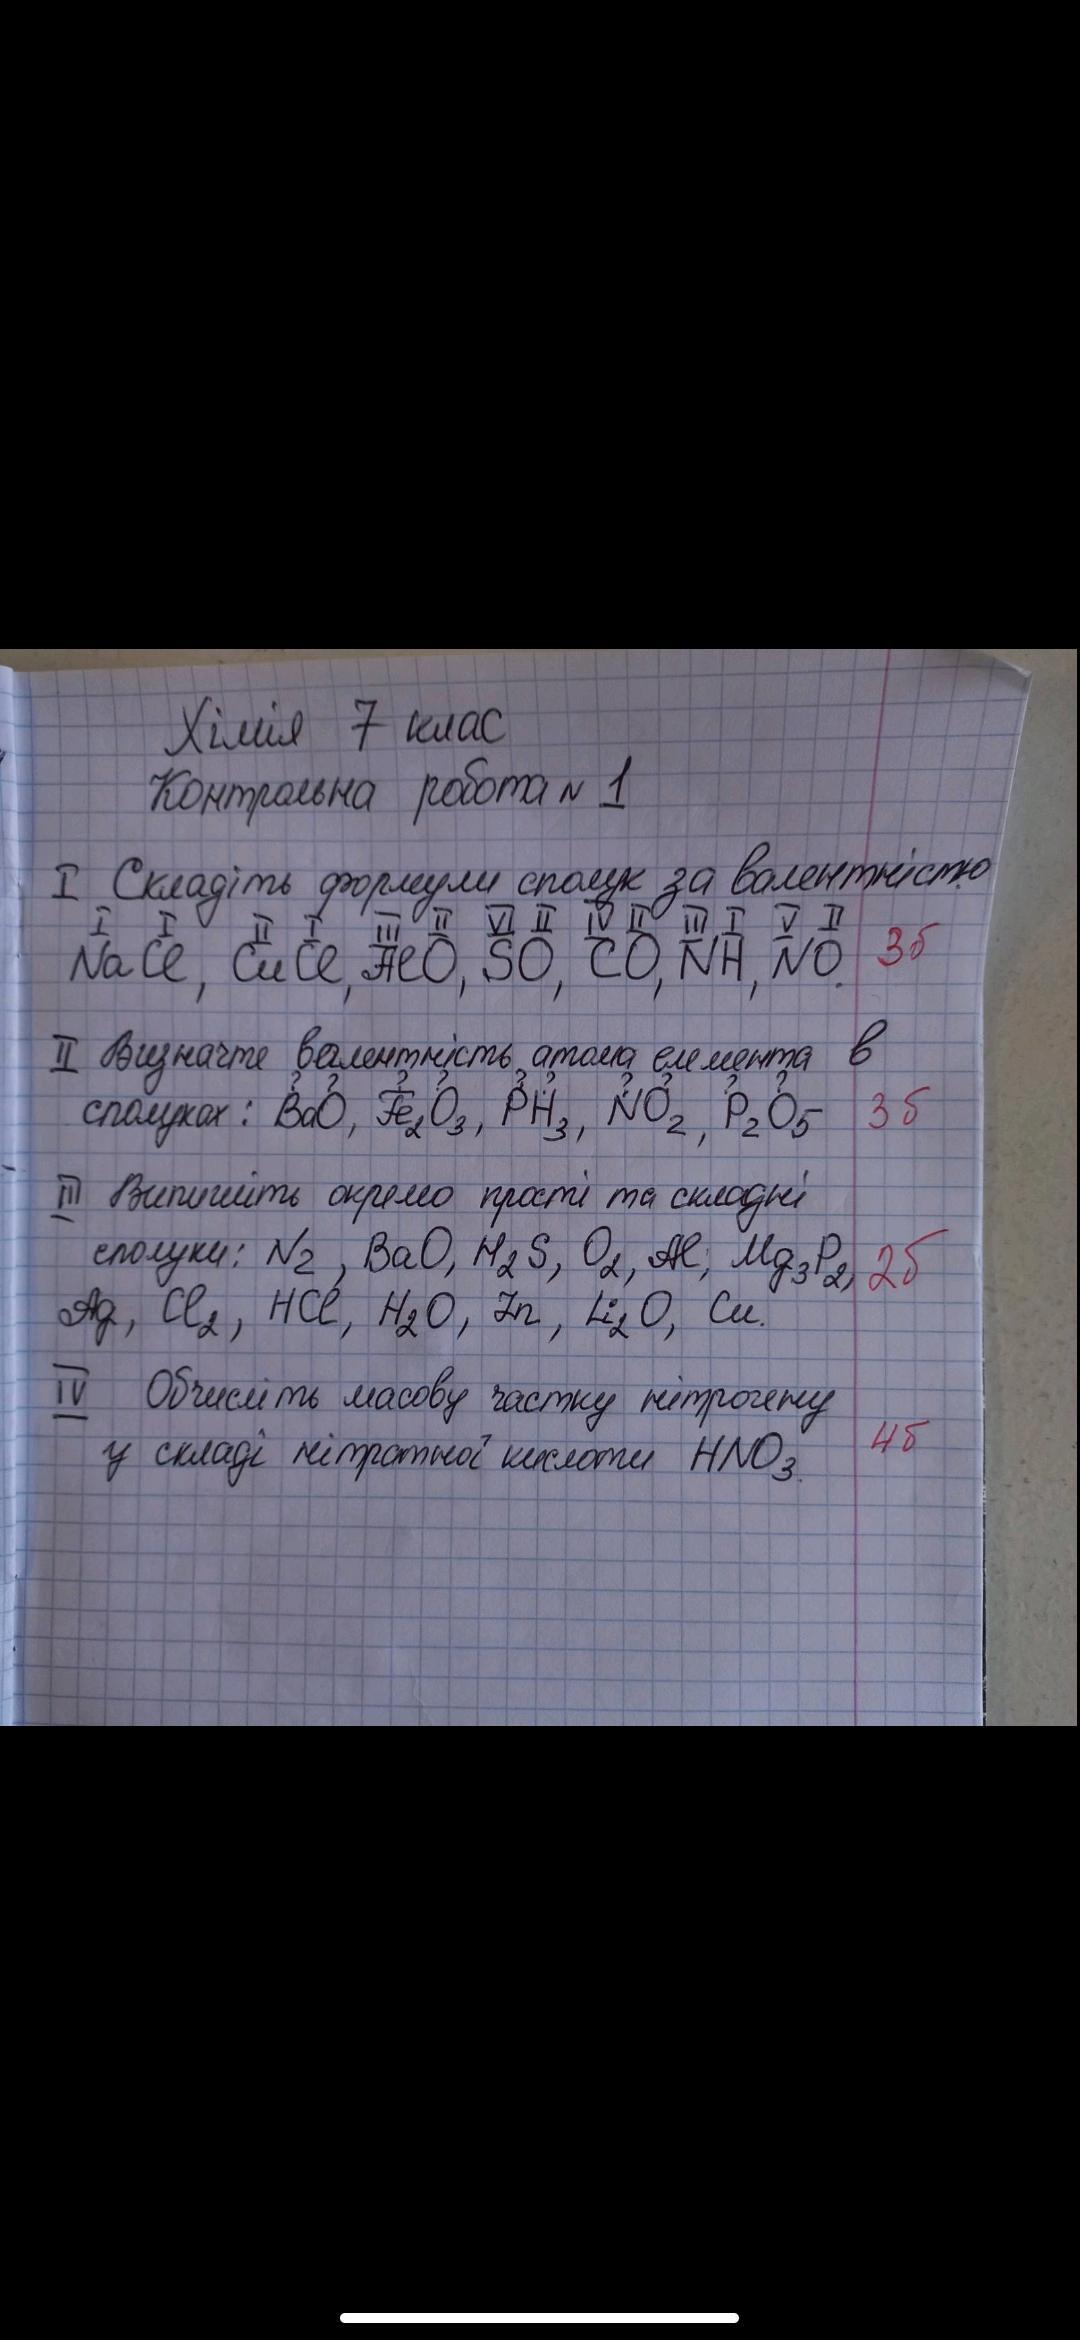 Хімія 7 клас
Контрольна робота № 1
I Складіть формули сполук за валентністю
I I II I III II VI II IV II III I V II
NaCl, CuCl, AlO, SO, CO, NH, NO. 3б
II Визначте валентність атома елемента в
? ? ? ? ? ? ? ? ? ?
сполуках: BaO, Fe₂O₃, PH₃, NO₂, P₂O₅ 3б
III Випишіть окремо прості та складні
сполуки: N₂, BaO, H₂S, O₂, Al, Mg₃P₂, 2б
Ag, Cl₂, HCl, H₂O, Zn, Li₂O, Cu.
IV Обчисліть масову частку нітрогену
у складі нітратної кислоти HNO₃. 4б